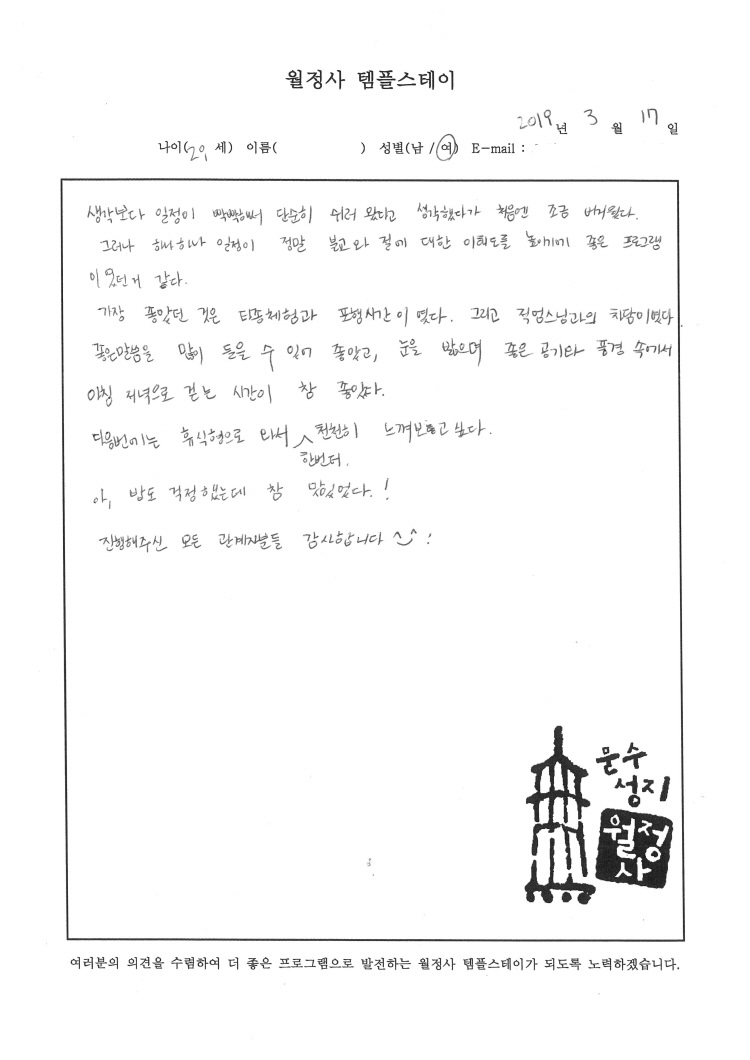 월정사 템플스테이
2019년 3월 17일
나이(29세) 이름( ) 성별(남 / 여) E-mail :
생각보다 일정이 빡빡해서 단순히 쉬러 왔다고 생각했다가 처음엔 조금 버거웠다.
그러나 하나하나 일정이 정말 불교와 절에 대한 이해도를 높이기에 좋은 프로그램
이었던거 같다.
가장 좋았던 것은 타종체험과 포행시간이였다. 그리고 적엄스님과의 차담이였다
좋은말씀을 많이 들을 수 있어 좋았고, 눈을 밟으며 좋은 공기와 풍경 속에서
아침 저녁으로 걷는 시간이 참 좋았다.
다음번에는 휴식형으로 와서 천천히 느껴보고 싶다.
한번더.
아, 밥도 걱정했는데 참 맛있었다.!
진행해주신 모든 관계자분들 감사합니다 ^^ !
문수
성지
월정
사
여러분의 의견을 수렴하여 더 좋은 프로그램으로 발전하는 월정사 템플스테이가 되도록 노력하겠습니다.